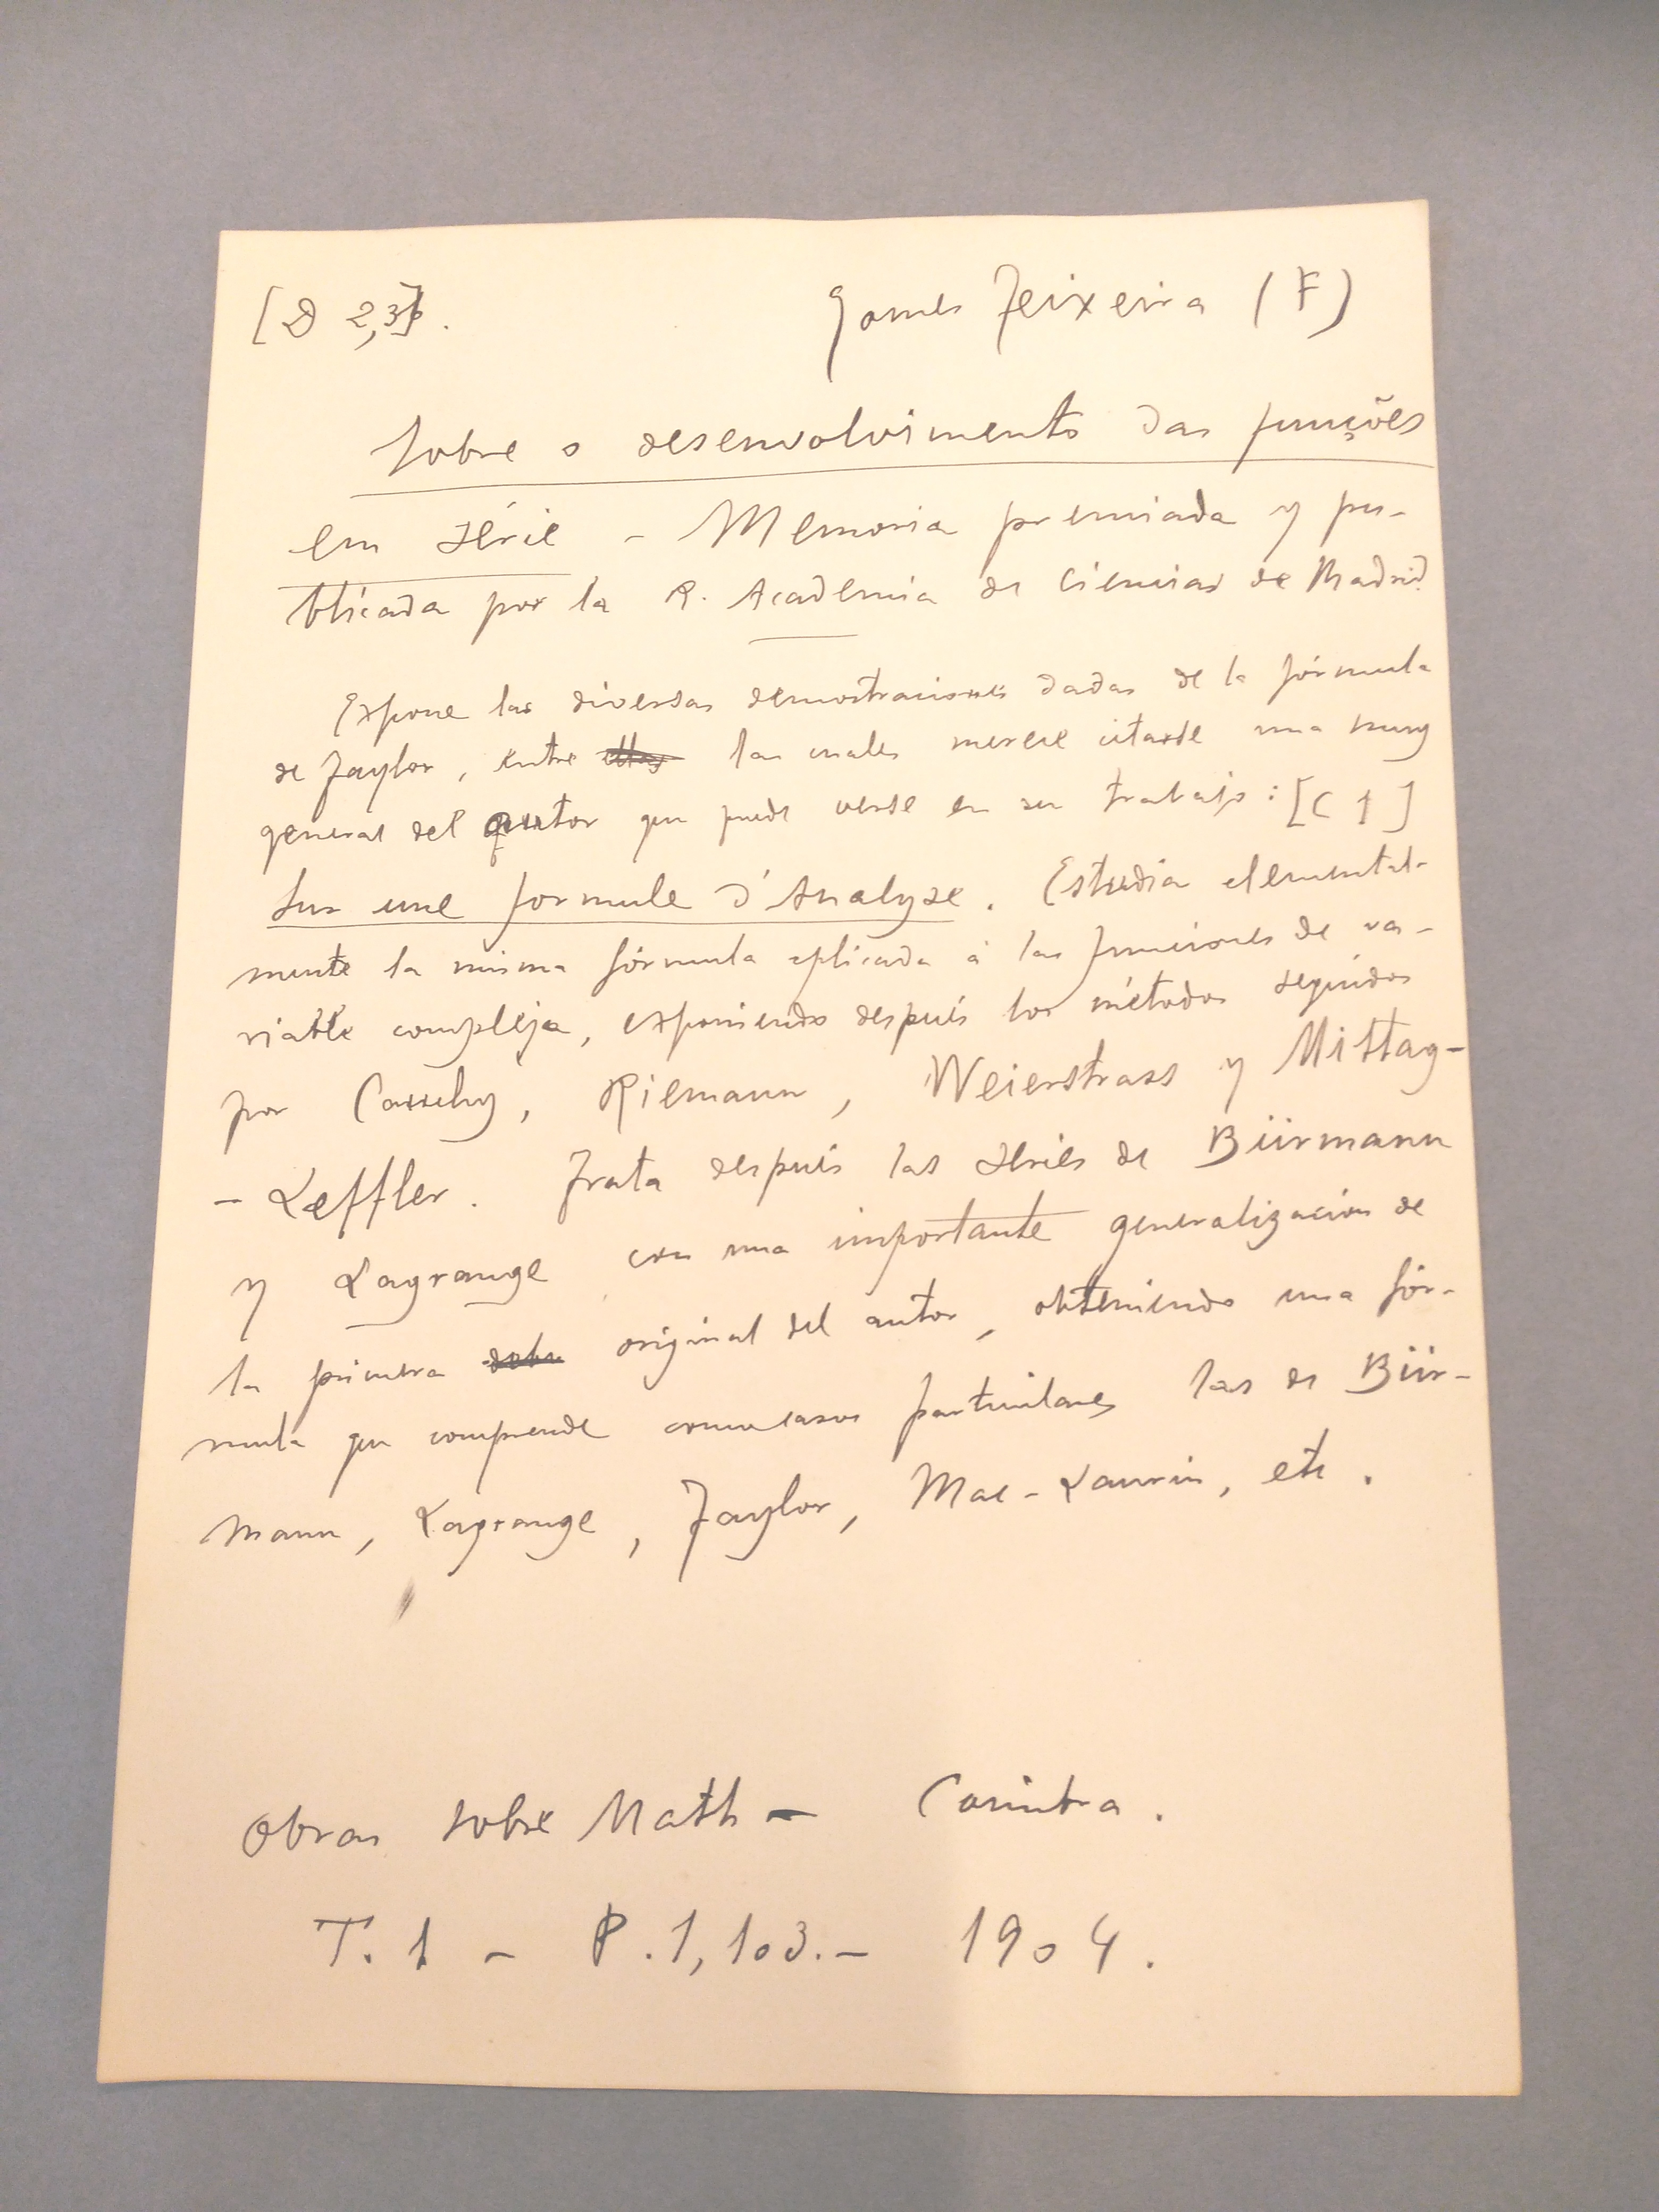 [D 2,3].
Gomes Teixeira (F)
Sobre o desenvolvimento das funções
em série - Memoria premiada y pu-
blicada por la R. Academia de Ciencias de Madrid.
Expone las diversas demostraciones dadas de la fórmula
de Taylor, entre ellas las cuales merece citarse una muy
general del autor que puede verse en su trabajo: [C 1]
Sur une formule d'Analyse. Estudia elemental-
mente la misma fórmula aplicada á las funciones de va-
riable compleja, exponiendo después los métodos seguidos
por Cauchy, Riemann, Weierstrass y Mittag-
- Leffler. Trata después las séries de Bürmann
y Lagrange con una importante generalización de
la primera original del autor, obteniendo una fór-
mula que comprende como casos particulares las de Bür-
mann, Lagrange, Taylor, Mac-Laurin, etc.
Obras sobre Math - Coimbra.
T. 1 - P. 1, 103. - 1904.